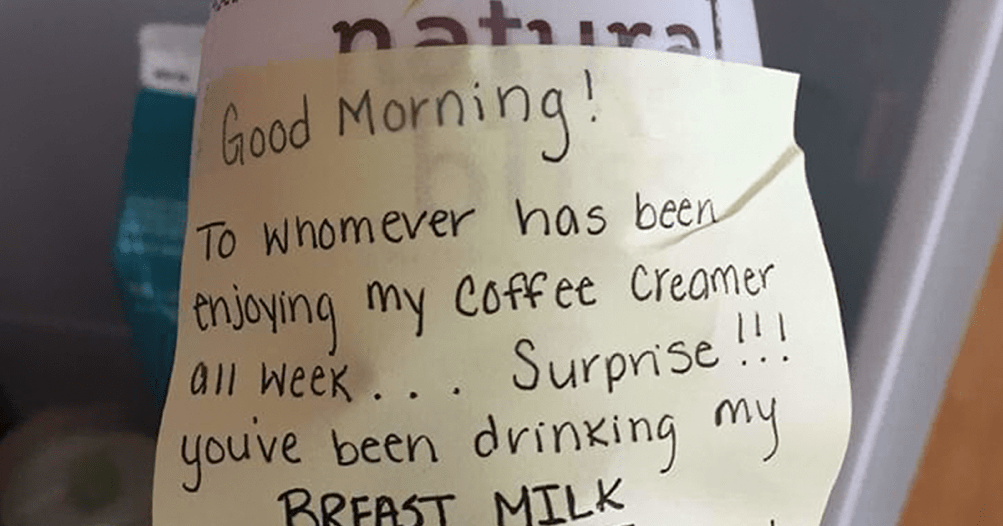 natural
Good Morning!
To whomever has been
enjoying my coffee creamer
all week... Surprise!!!
you've been drinking my
BREAST MILK